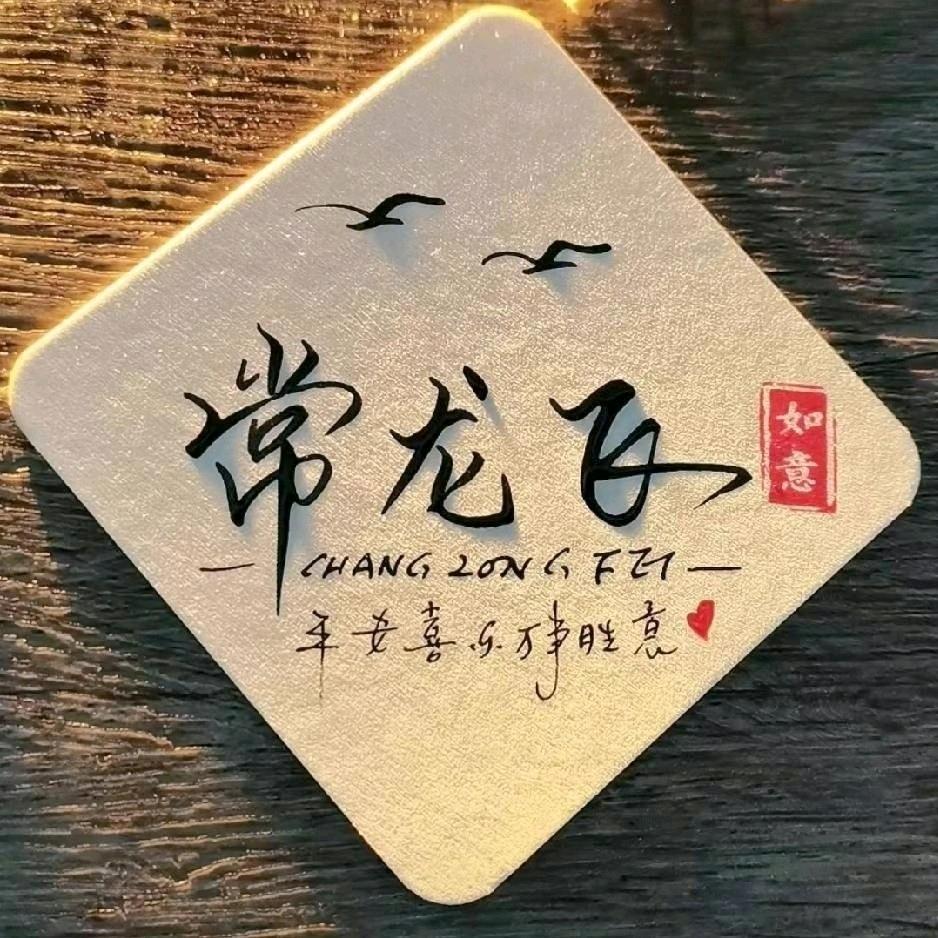 常龙飞
如意
CHANG LONG FEI
平安喜乐万事胜意